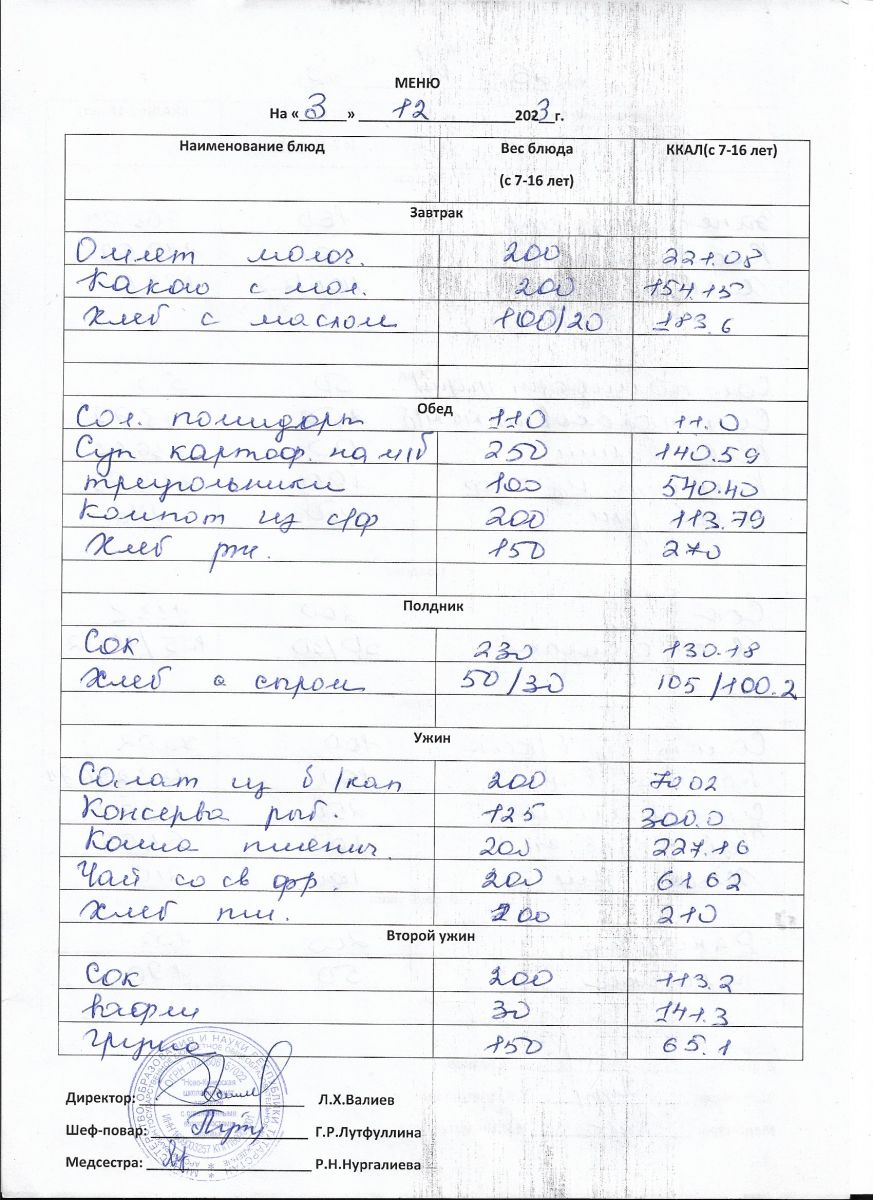 МЕНЮ
На « 3 » 12 2023 г.
Наименование блюд Вес блюда (с 7-16 лет) ККАЛ(с 7-16 лет)
Завтрак
Омлет молоч. 200 221.08
Какао с мол. 200 154.15
Хлеб с маслом 100/20 183.6
Обед
Сол. помидоры 110 11.0
Суп картоф. на м/б 250 140.59
треугольники 100 540.40
Компот из с/ф 200 113.79
Хлеб рж. 150 270
Полдник
Сок 230 130.18
Хлеб с сыром 50/30 105/100.2
Ужин
Салат из б/кап 200 70 02
Консерва рыб. 125 300.0
Каша пшенич. 200 227.16
Чай со св фр. 200 61.62
Хлеб пш. 200 210
Второй ужин
Сок 200 113.2
вафли 30 141.3
Груша 150 65.1
Директор: Л.Х.Валиев
Шеф-повар: Г.Р.Лутфуллина
Медсестра: Р.Н.Нургалиева